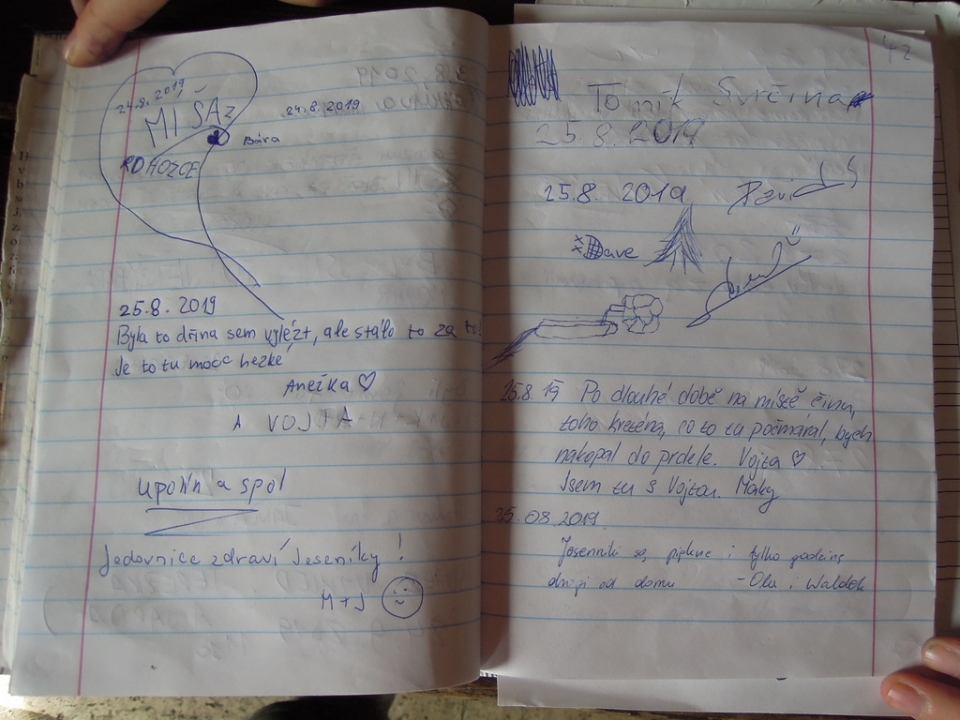 24.8.2019
MÍŠA z
ROHOZCE
24.8.2019
Bára
25.8. 2019
Byla to dřina sem vylézt, ale stálo to za to!
Je to tu mocc hezké
Anežka ♡
A VOJTA
upolín a spol
Jedovnice zdraví Jeseníky!
M + J
42
Toník Svrčina
25.8.2019
25.8. 2019 David
Dave
25.8.19 Po dlouhé době na místě činu,
toho kretena, co to tu počmáral, bych
nakopal do prdele. Vojta ♡
Jsem tu s Vojtou. Maky
25.08.2019.
Jesenniki są piękne i tylko godzinę
drogi od domu - Ola i Waldek